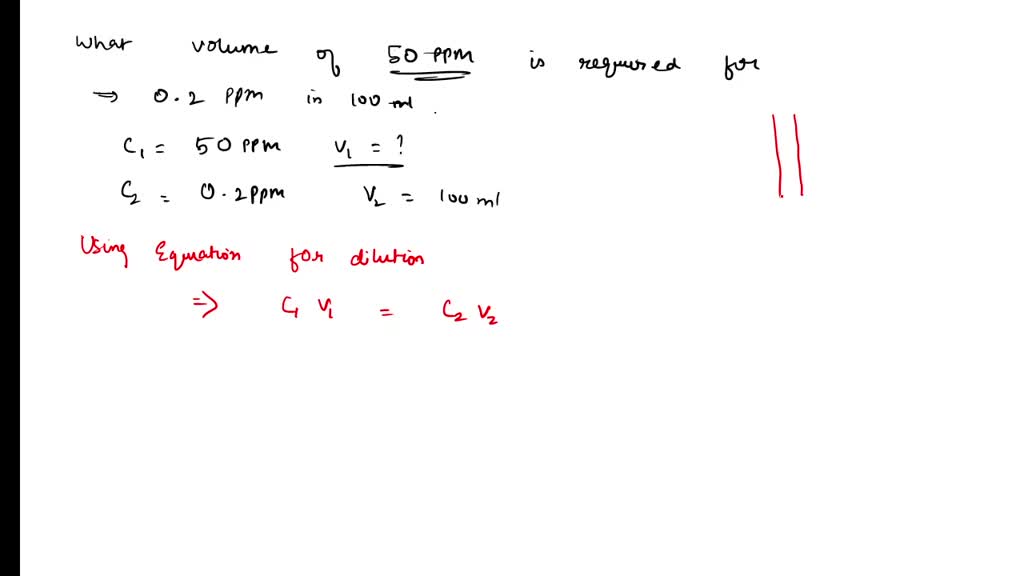 What volume of 50 ppm is required for
⇒ 0.2 ppm in 100 ml.
C₁ = 50 ppm V₁ = ?
C₂ = 0.2 ppm V₂ = 100 ml
Using Equation for dilution
⇒ C₁ V₁ = C₂ V₂